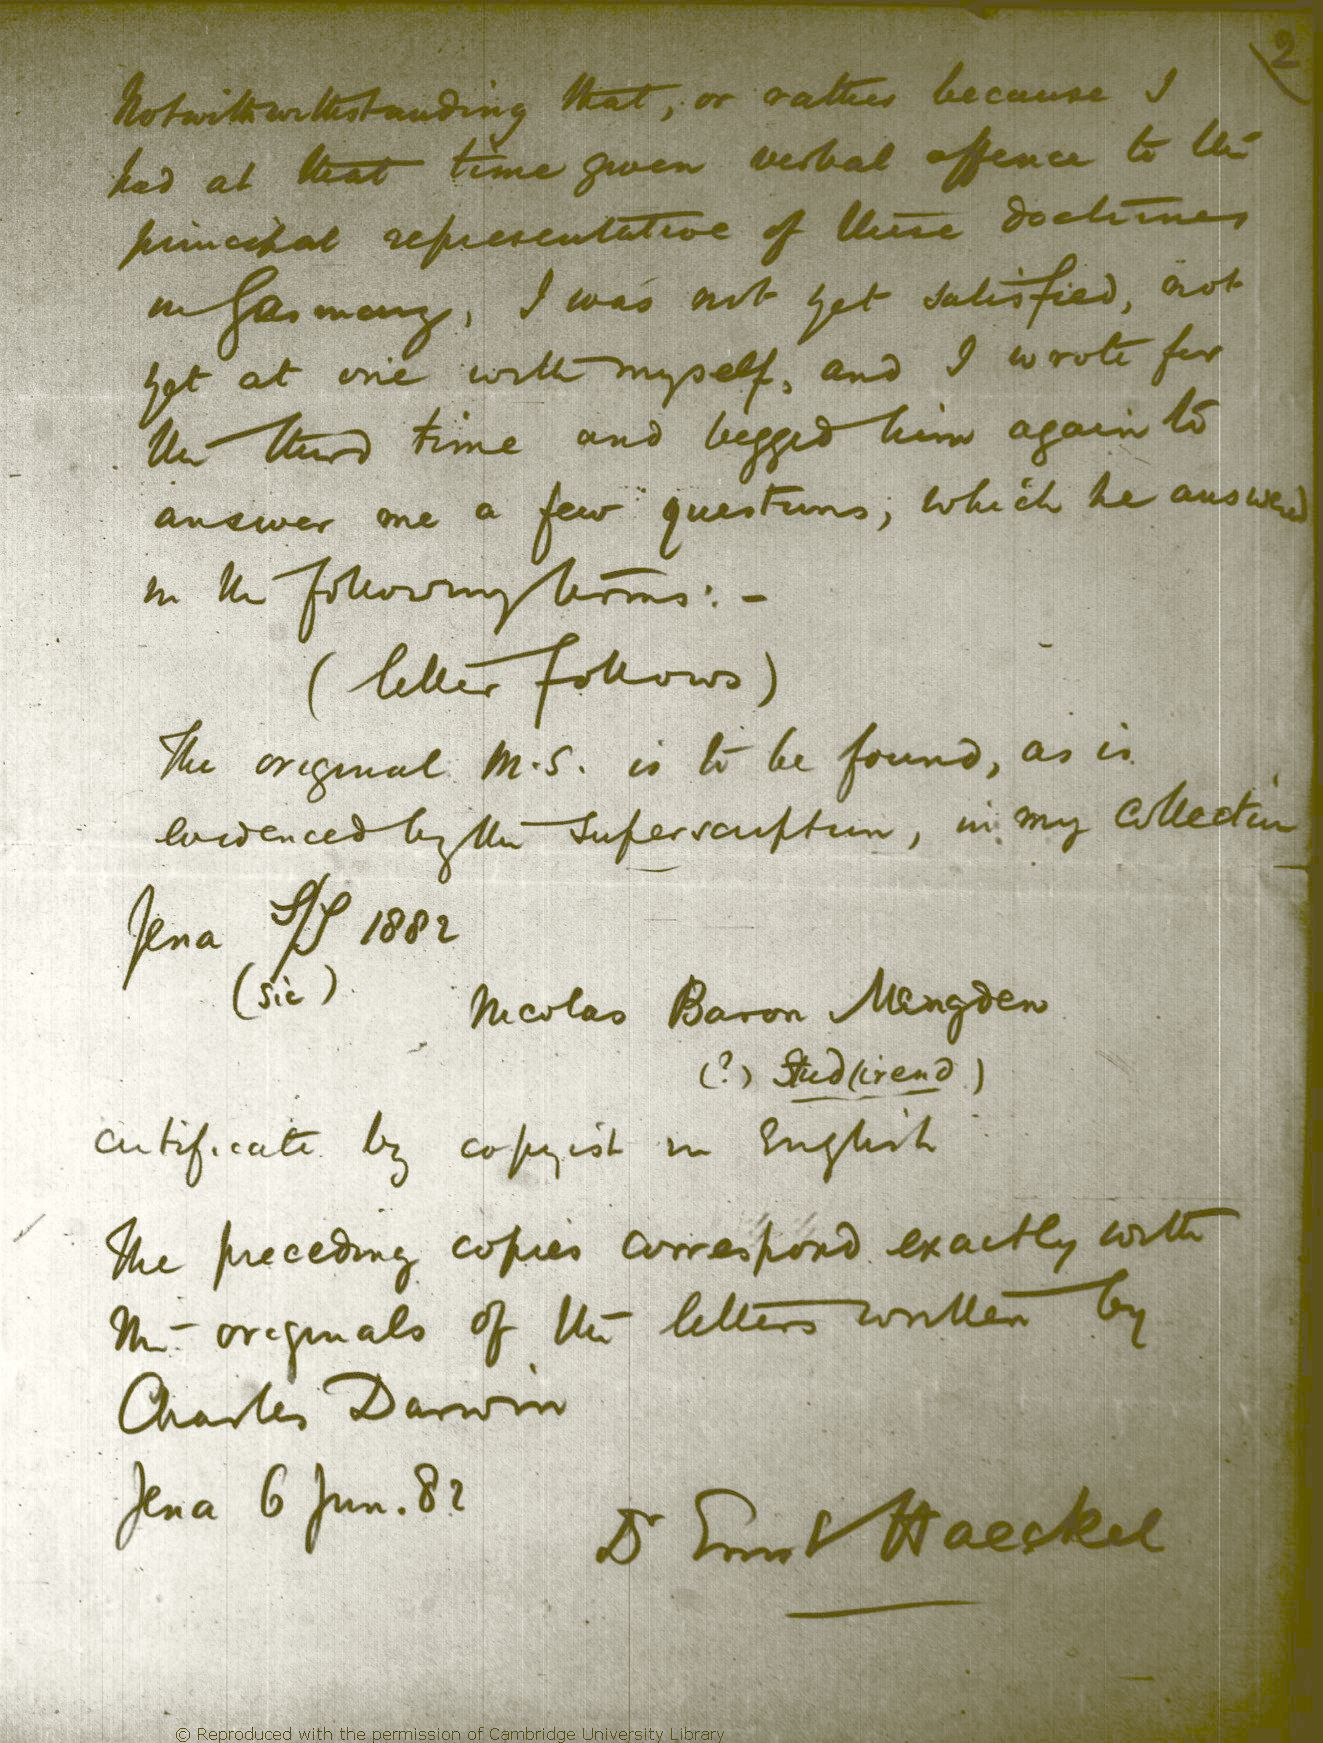 2
Notwithwithstanding that, or rather because I
had at that time given verbal offence to the
principal representative of these doctrines
in Germany, I was not yet satisfied, not
yet at one with myself, and I wrote for
the third time and begged him again to
answer me a few questions, which he answered
in the following terms: -
(letter follows)
The original M.S. is to be found, as is
evidenced by the superscription, in my collection
Jena S/S 1882
(sic)
Nicolas Baron Mengden
(?) Stud(irend)
certificate by copyist in English
The preceding copies correspond exactly with
the originals of the letters written by
Charles Darwin
Jena 6 Jun. 82
Dr Ernst Haeckel
© Reproduced with the permission of Cambridge University Library